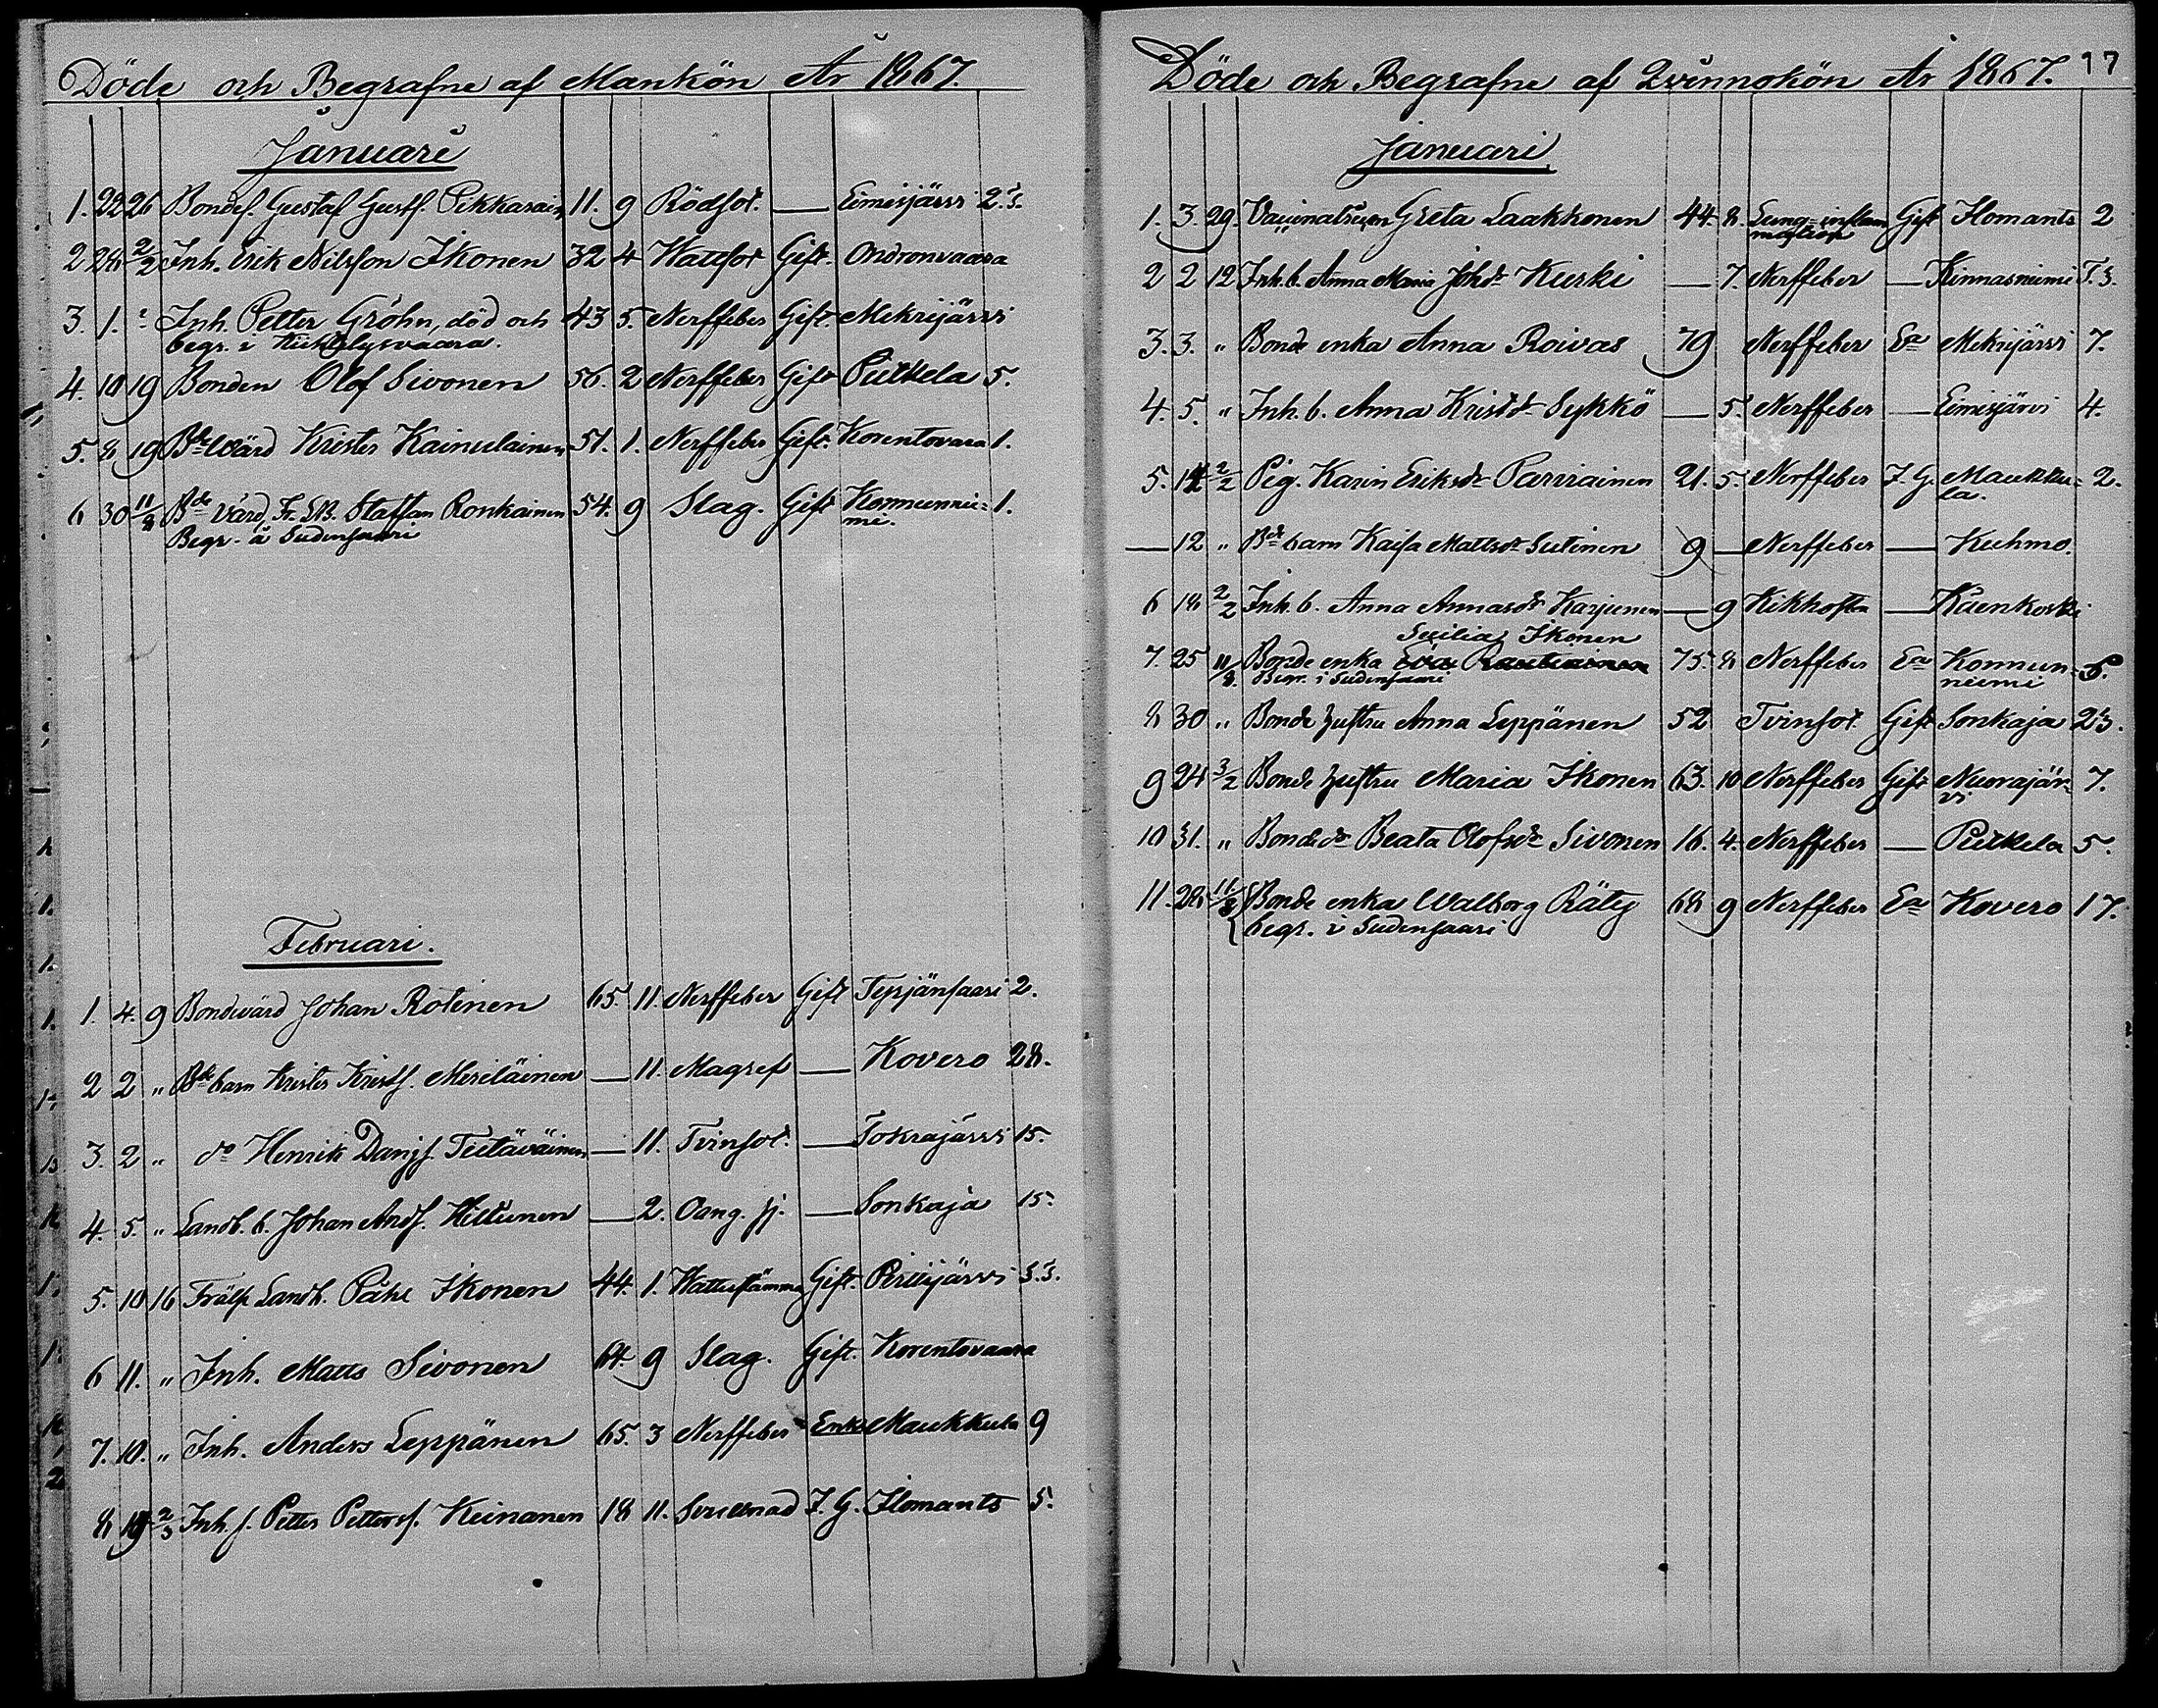 Döde och Begrafne af Mankön År 1867.
Januari
1. 22 26 Bondes. Gustaf Gustfs. Pikkarain 11. 9 Rödsot. — Eimisjärvi 2.
2 28 2/2 Inh. Erik Nilsson Ikonen 32 4 Wattsot Gift. Ondronvaara
3. 1. Inh. Petter Gröhn, död och 43 5. Nerffeber Gift. Mekrijärvi
begr. i Kiihtelysvaara.
4. 10 19 Bonden Olof Sivonen 56. 2 Nerffeber Gift Putkela 5.
5. 8 19 Bde Wärd Krister Kainulainen 51. 1. Nerffeber Gift. Korentovara 1.
6 30 11/8 Bde Värd, Staffan Ronkainen 54. 9 Slag. Gift Konnunnie= 1.
Begr. å Sudensaari mi.
Februari.
1. 4. 9 Bondevärd Johan Rotinen 65. 11. Nerffeber Gift Tepjänsaari 2.
2 2 " Bde barn Krister Krists. Meriläinen — 11. Magref — Kovero 28.
3. 2 " do Henrik Danjs. Tietäväinen — 11. Tvinsot. — Tokrajärvi 15.
4. 5. " Landb. b. Johan Ands. Hiltunen — 2. Oang. sj. — Sonkaja 15.
5. 10 16 Frälse Landb. Påhl Ikonen 44. 1. Wattustämma Gift. Piilijärvi
6 11. " Inh. Matts Sivonen 64. 9 Slag. Gift. Korentovaara
7. 10. " Inh. Anders Leppänen 65. 3 Nerffeber Enkl. Maukkula 9
8 19 2/3 Inh. s. Petter Petters. Keinanen 18 11. Svullnad I. G. Ilomants 5.
Döde och Begrafne af Qvinnokön År 1867. 17
Januari
1. 3. 29. Vaccinatrisen Greta Laakkonen 44. 8. Lung=inflam Gift Ilomants 2
mation
2 2 12 Inh. b. Anna Maria Johdr Kurski — 7. Nerffeber — Kinnasniemi
3. 3. " Bonde enka Anna Roivas 79 Nerffeber Ea Mekrijärvi 7.
4. 5. " Inh. b. Anna Kristdr Sykkö — 5. Nerffeber — Eimisjärvi 4.
5. 14 2/2 Pig. Karin Eriksdr Parviainen 21. 5. Nerffeber I. G. Maukku= 2.
la.
— 12 " Bde barn Kaisa Mattsdr Sutinen 9 — Nerffeber — Kuhmo.
6 18 2/2 Inh. b. Anna Annasdr Karjunen — 9 Kikhosta — Kuenkoski
Sicilia Ikonen
7. 25 11/8. Bonde enka Eva Rautiainen 75. 8 Nerffeber Ea Konnun=
Begr. i Sudensaari niemi
8 30 " Bonde hustru Anna Leppänen 52 Tvinsot Gift Sonkaja 23.
9 24 3/2 Bonde hustru Maria Ikonen 63. 10 Nerffeber Gift Nuorajär= 7.
vi
10 31. " Bondedr Beata Olofsdr Sivonen 16. 4. Nerffeber — Putkela 5.
11. 28 11/8 Bonde enka Walborg Räty 68 9 Nerffeber Ea Kovero 17.
begr. i Sudensaari